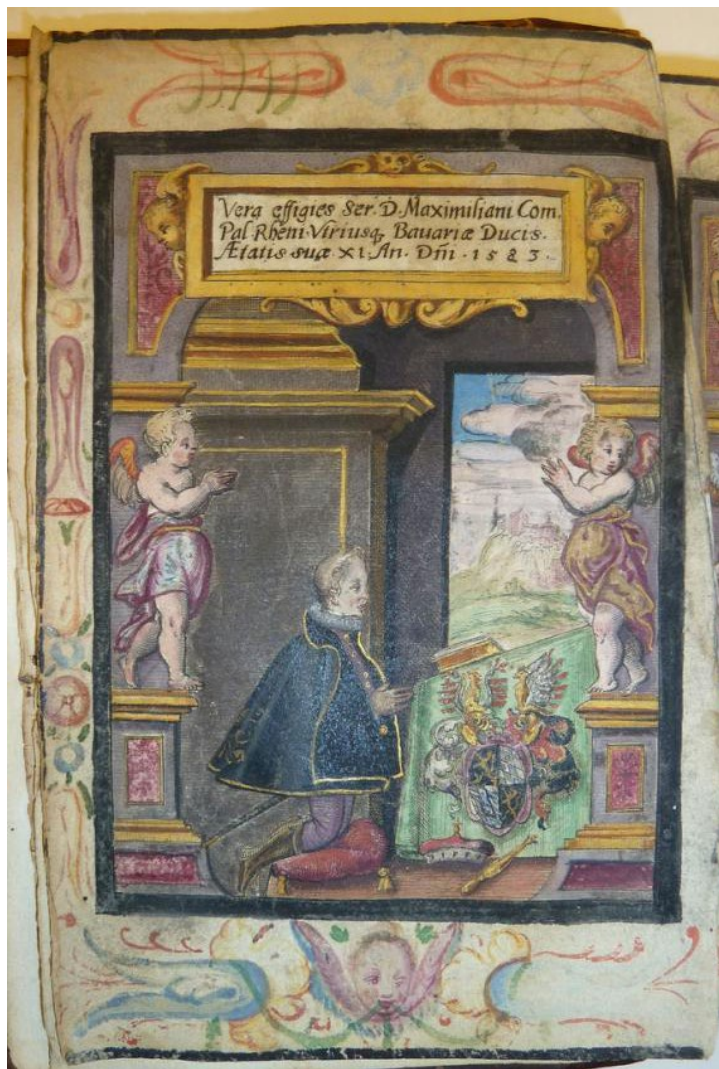 Vera effigies Ser. D. Maximiliani Com.
Pal. Rheni Vtriusq. Bauariæ Ducis.
Ætatis suæ XI. An. Dm̃i . 1583.